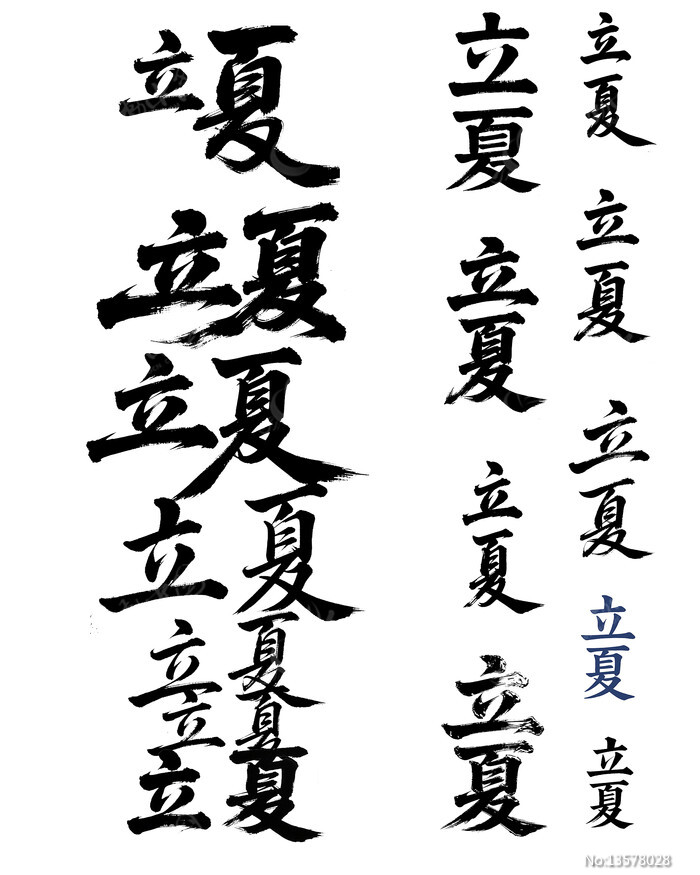 立夏
立夏
立夏
立夏
立夏
立夏
立夏
立夏
立夏
立夏
立夏
立夏
立夏
立夏
立夏
立夏
No:13578028